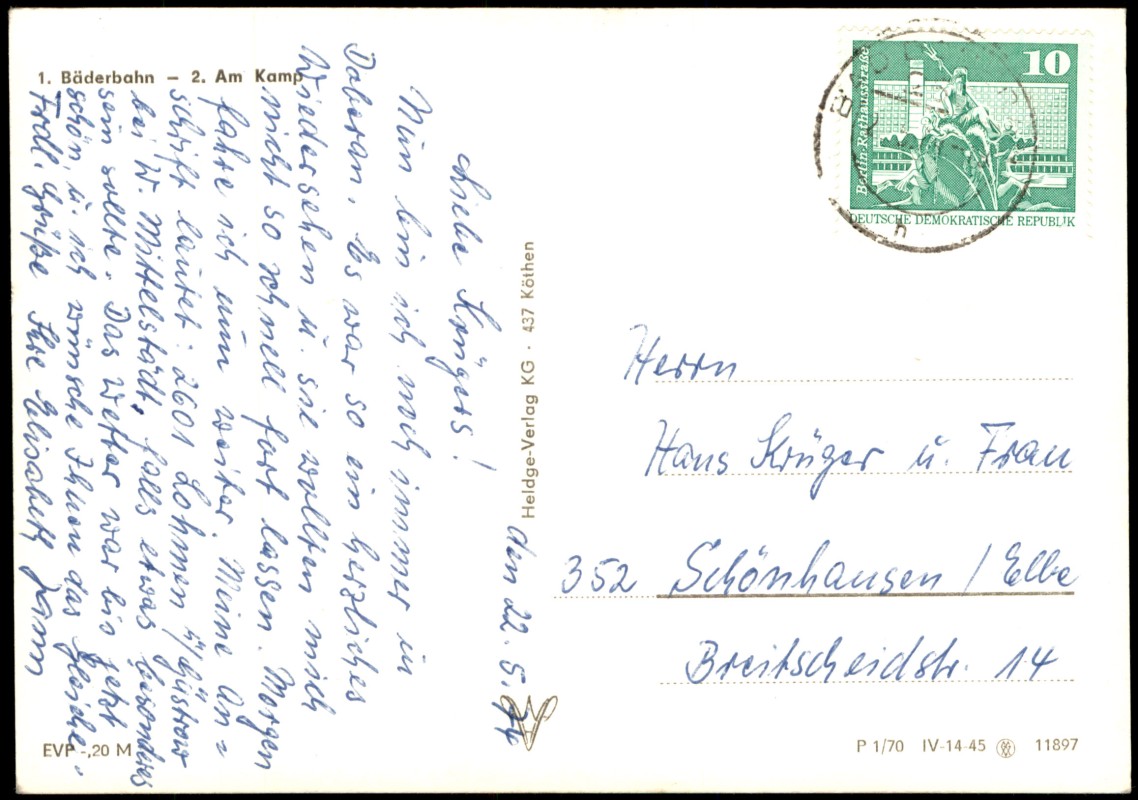 1. Bäderbahn – 2. Am Kamp
den 22. 5. 76
Liebe Krügers!
Nun bin ich noch immer in
Doberan. Es war so ein herzliches
Wiedersehen u. sie wollten mich
nicht so schnell fort lassen. Morgen
fahre ich nun weiter. Meine An=
schrift lautet: 2601 Lohmen ü/Güstrow
bei W. Mittelstädt, falls etwas besonderes
sein sollte. Das Wetter war bis jetzt
schön, u. ich wünsche Ihnen das Gleiche.
Frdl. Grüße Ihre Elisabeth Jann
EVP -,20 M
Heldge-Verlag KG · 437 Köthen
10
Berlin-Rathausstraße
DEUTSCHE DEMOKRATISCHE REPUBLIK
BAD
n
Herrn
Hans Krüger u. Frau
352 Schönhausen / Elbe
Breitscheidstr. 14
P 1/70 IV-14-45 11897